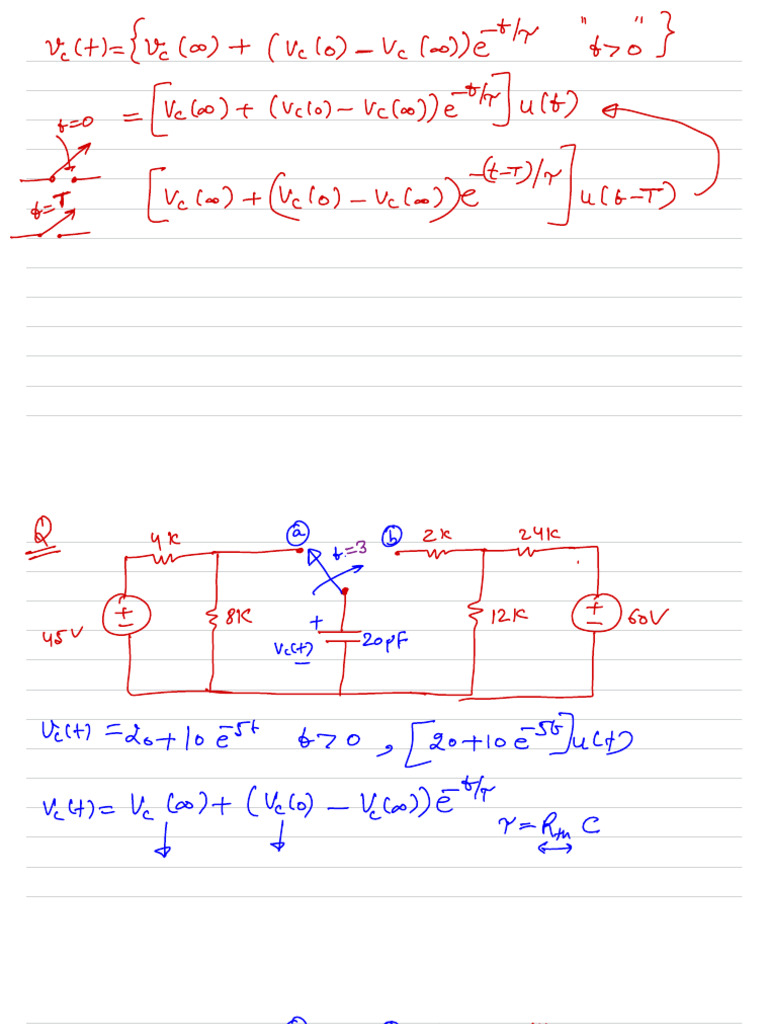 v_c(t) = {v_c(∞) + (V_c(0) − V_c(∞)) e^{−t/τ} "t>0"}
t=0 = [V_c(∞) + (V_c(0) − V_c(∞)) e^{−t/τ}] u(t)
t=T [V_c(∞) + (V_c(0) − V_c(∞)) e^{−(t−T)/τ}] u(t−T)
Q 4K ⓐ t=3 ⓑ 2K 24K
45V + − 8K + V_c(t) − 20pF 12K + − 60V
V_c(t) = 20+10 e^{−5t} t>0, [20+10 e^{−5t}] u(t)
V_c(t) = V_c(∞) + (V_c(0) − V_c(∞)) e^{−t/τ}
τ = R_{th} C